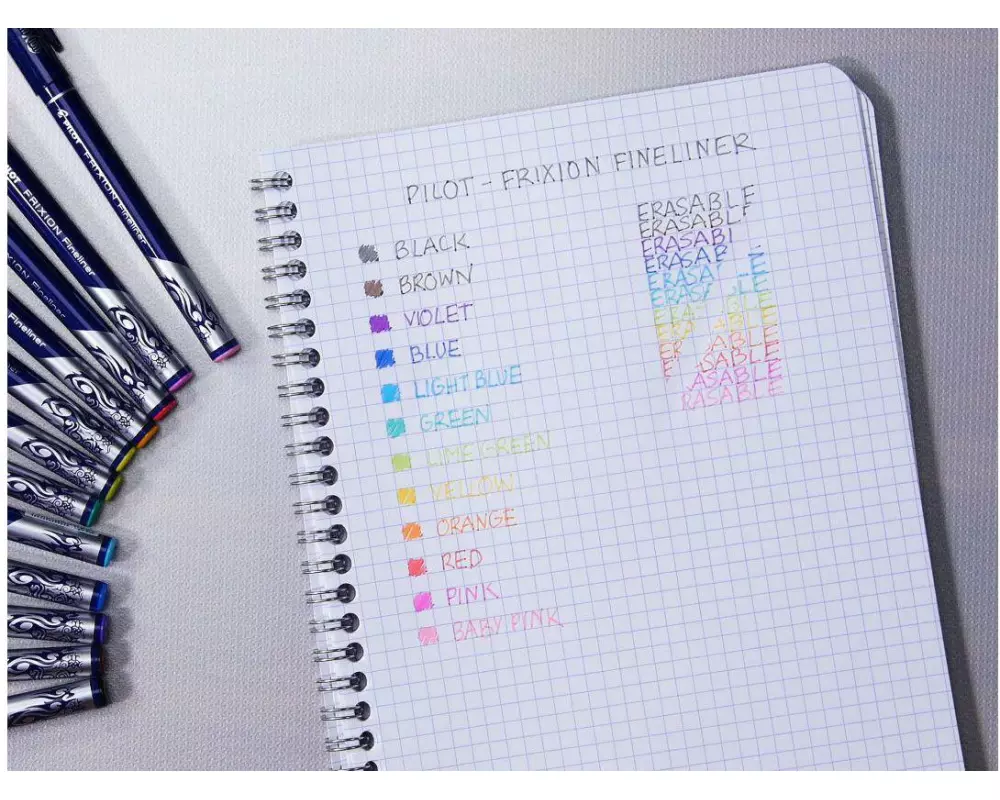 PILOT FRIXION Fineliner
PILOT FRIXION Fineliner
FRIXION Fineliner
Fineliner
PILOT - FRIXION FINELINER
BLACK
BROWN
VIOLET
BLUE
LIGHT BLUE
GREEN
LIME GREEN
YELLOW
ORANGE
RED
PINK
BABY PINK
ERASABLE
ERASABLE
ERASABL
ERASAB E
ERASA LE
ERAS BLE
ERA ABLE
ERA ABLE
ER ABLE
E SABLE
ASABLE
RASABLE